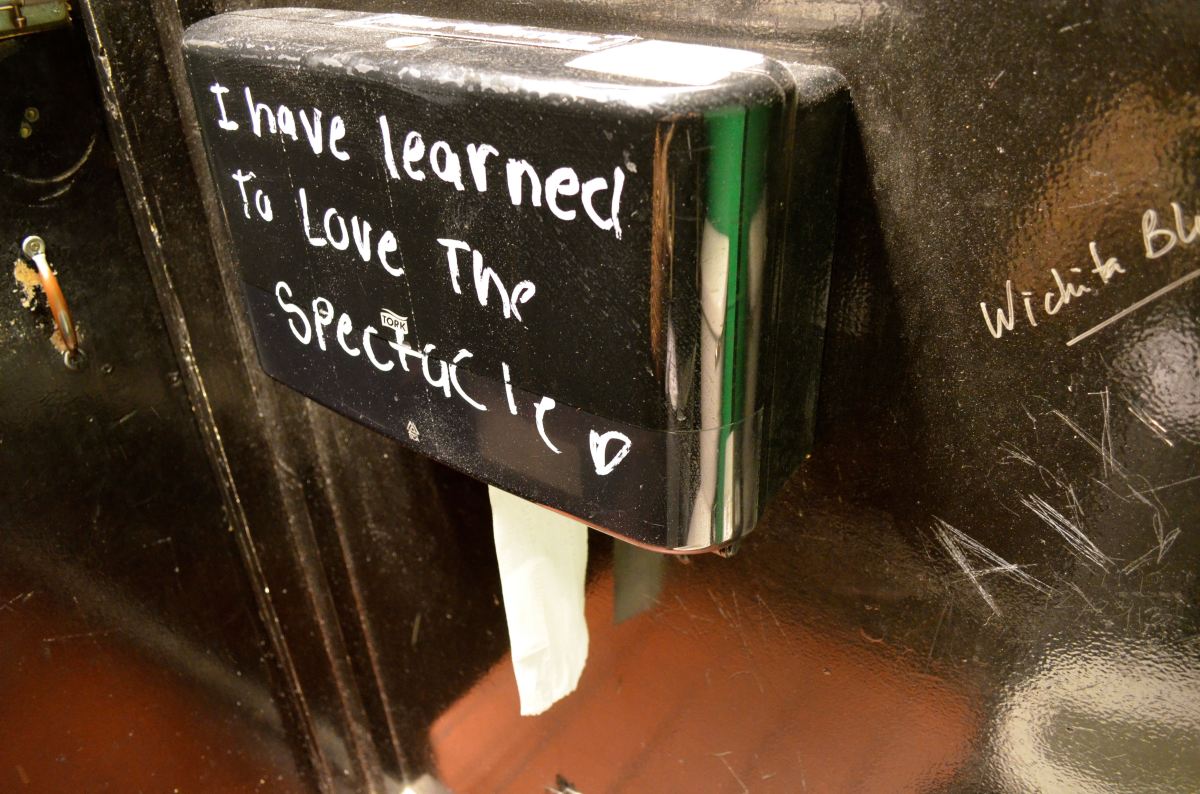 I have learned
To Love The
Spectacle
TORK
Wichita